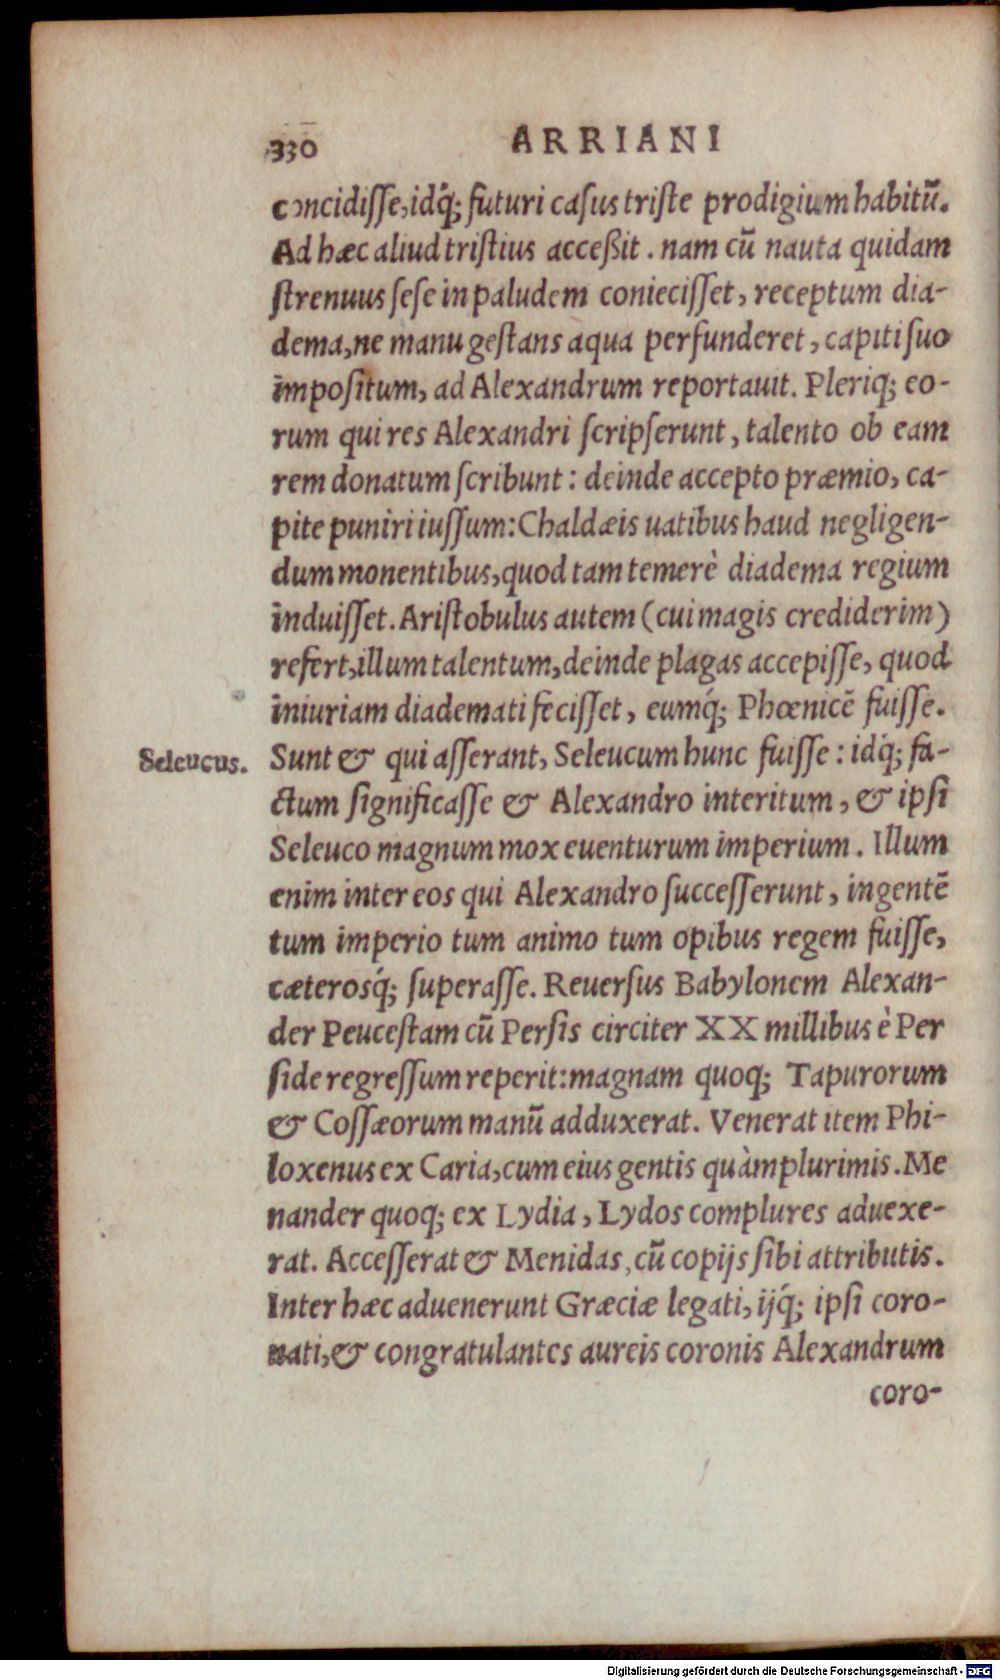 330 ARRIANI
concidiſſe,idq́; futuri caſus triſte prodigium habitū.
Ad hæc aliud triſtius acceßit. nam cū nauta quidam
ſtrenuus ſeſe in paludem conieciſſet, receptum dia-
dema,ne manu geſtans aqua perfunderet, capiti ſuo
impoſitum, ad Alexandrum reportauit. Pleriq; eo-
rum qui res Alexandri ſcripſerunt, talento ob eam
rem donatum ſcribunt: deinde accepto præmio, ca-
pite puniri iuſſum: Chaldæis uatibus haud negligen-
dum monentibus,quod tam temerè diadema regium
induiſſet. Ariſtobulus autem (cui magis crediderim)
refert,illum talentum,deinde plagas accepiſſe, quod
iniuriam diademati feciſſet, eumq́; Phœnicē fuiſſe.
Seleucus. Sunt & qui aſſerant, Seleucum hunc fuiſſe: idq́; fa-
ctum ſignificaſſe & Alexandro interitum, & ipſi
Seleuco magnum mox euenturum imperium. Illum
enim inter eos qui Alexandro ſucceſſerunt, ingentē
tum imperio tum animo tum opibus regem fuiſſe,
cæterosq́; ſuperaſſe. Reuerſus Babylonem Alexan-
der Peuceſtam cū Perſis circiter XX millibus è Per
ſide regreſſum reperit: magnam quoq; Tapurorum
& Coſſæorum manū adduxerat. Venerat item Phi-
loxenus ex Caria,cum eius gentis quàmplurimis. Me
nander quoq; ex Lydia, Lydos complures aduexe-
rat. Acceſſerat & Menidas, cū copijs ſibi attributis.
Inter hæc aduenerunt Græciæ legati, ijq́; ipſi coro-
nati,& congratulantes aureis coronis Alexandrum
coro-
Digitalisierung gefördert durch die Deutsche Forschungsgemeinschaft - DFG